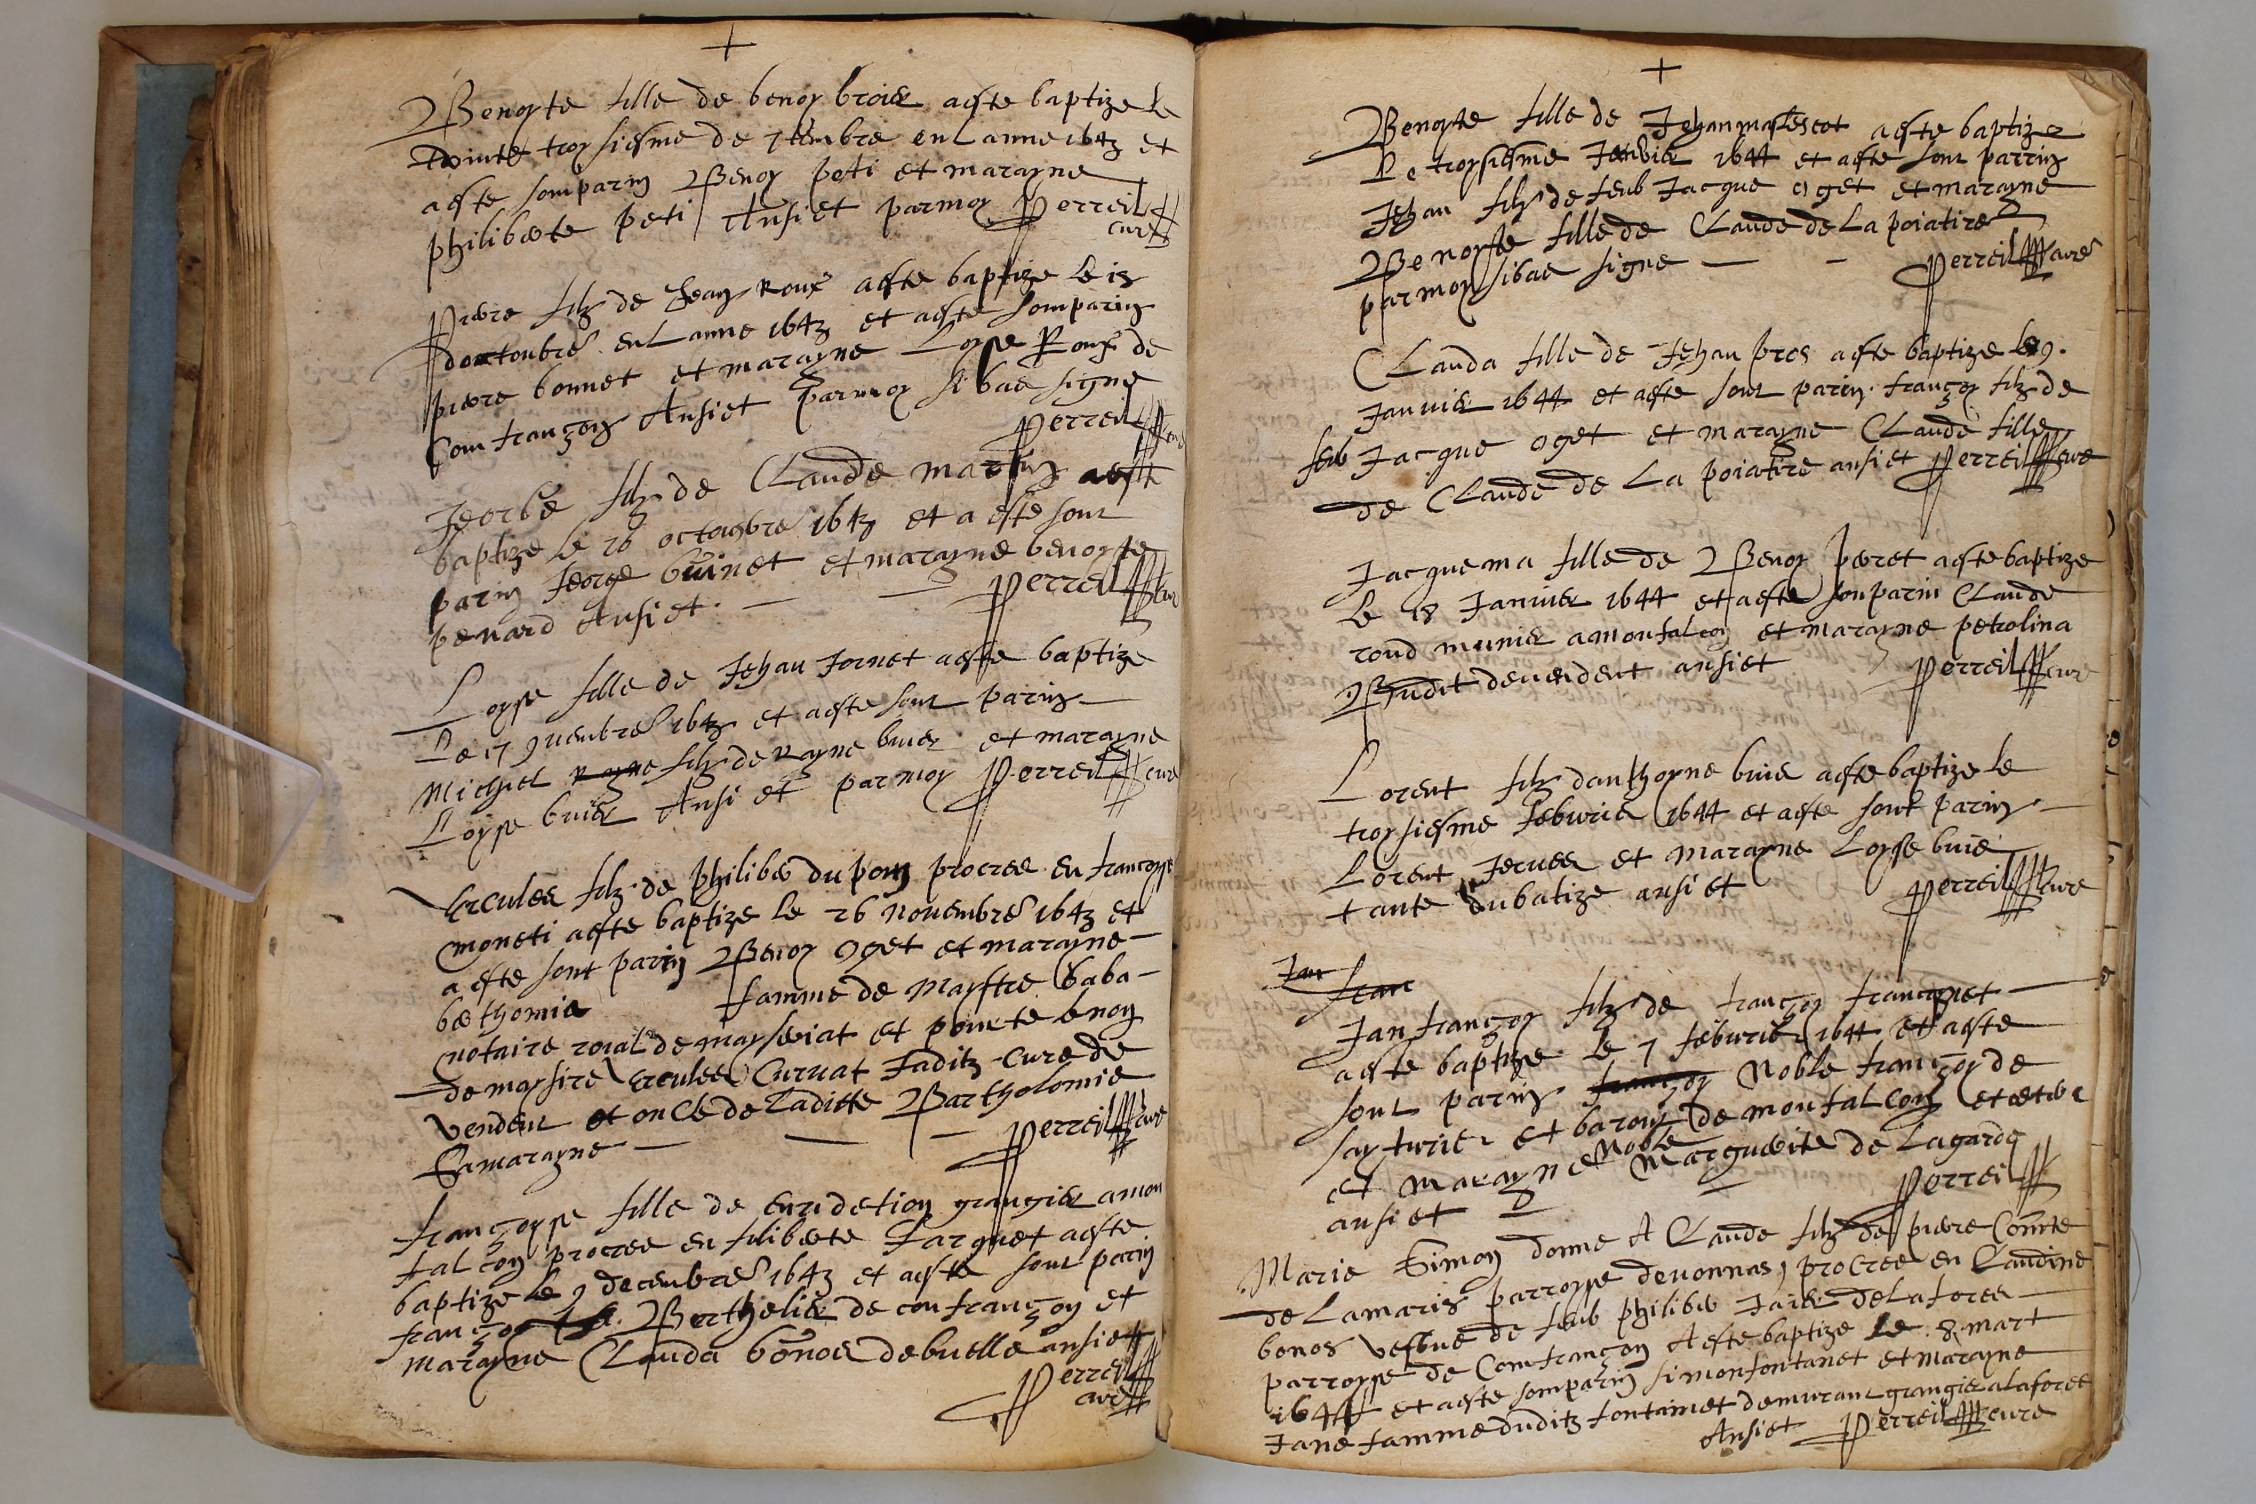 +
Benoyte fille de benoy broier aeste baptize le
trointe troysiesme de 7tembre en L anne 1643 et
aeste somparin Benoy peti et marayne
philiberte peti Ansiet parmoy Perreil
cure
Piere filz de Jean Roux aeste baptize le 18
doctoubre en L anne 1643 et aeste somparin
piere bonnet et marayne Loyse Roux de
Comfrançon Ansiet parmoy sibas signe
Perreil cure
Jeorbe filz de Claude martin aeste
baptize le 26 octoubre 1643 et a este sont
parin Jeorge guinet et marayne benoyste
penard Ansiet. Perreil cure
Loyse fille de Jehan Jornet aeste baptize
Le 17 9vembre 1643 et aeste sont parin
Michiel filz de Rayne buier et marayne
Loyse buier Ansi et parmoy Perreil cure
hercules filz de philiber du pont procree en francoyse
moneti aeste baptize le 26 novembre 1643 et
aeste sont parin Benoy oget et marayne
berthomie famme de maystre Saba-
notaire roial de mayseriat et pourte le noy
de maysire ercules Curvat Jaditz cure de
vendeur et oncle de Laditte Bartholomie
Samarayne Perreil cure
françoyse fille de grangier amon
falcon procree en filiberte Jarquet aeste
baptize le 9 decembre 1643 et aeste sont parin
françoy Berthelier de confrançon et
marayne Clauda bonoes debuelle ansiet
Perreil
cure
+
Benoyte fille de Jehan maplescot aeste baptize
Le troysiesme Janvier 1644 et aeste sont parrin
Jehan filz de feub Jacque oget et marayne
Benoyste fille de Claude de La poiatire
parmoy sibas signe Perreil cure
Clauda fille de Jehan pros aeste baptize le 9.
Januier 1644 et aeste sont parin. françoy filz de
feub Jacque oget et marayne Claude fille
de Claude de La poiatire ansiet Perreil cure
Jacquema fille de Benoy peret aeste baptize
Le 18 Januier 1644 et aeste sonparin Claude
rond munier amonfalcon et marayne petrolina
Budit devendent ansiet Perreil cure
Lorent filz danthoyne buie aeste baptize le
troysiesme feburier 1644 et aeste sont parin
Lorent Jeruer et Marayne Loyse buie
tante dubatize ansiet Perreil cure
Jan
fran
Jan françoy filz de françoy francoynet
aeste baptize Le 7 feburier 1644 et aeste
sont parin françoy Noble françoy de
say turier et baron de monfalcon etcetere
et marayne Noble Marguerite de Lagarde
ansiet Perreil
Marie Simon donne A Claude filz de piere Comte
de Lamaris parroysse devonnas, procree en Claudine
bonos vefbue de feub philiber Jaier delaforee
parroysse de Comfrançon Aeste baptize Le 8. mart
1644 et aeste somparin simonfontanet et Marayne
Jane famme duditz fontainet demurant grangier alaforee
Ansiet Perreil cure